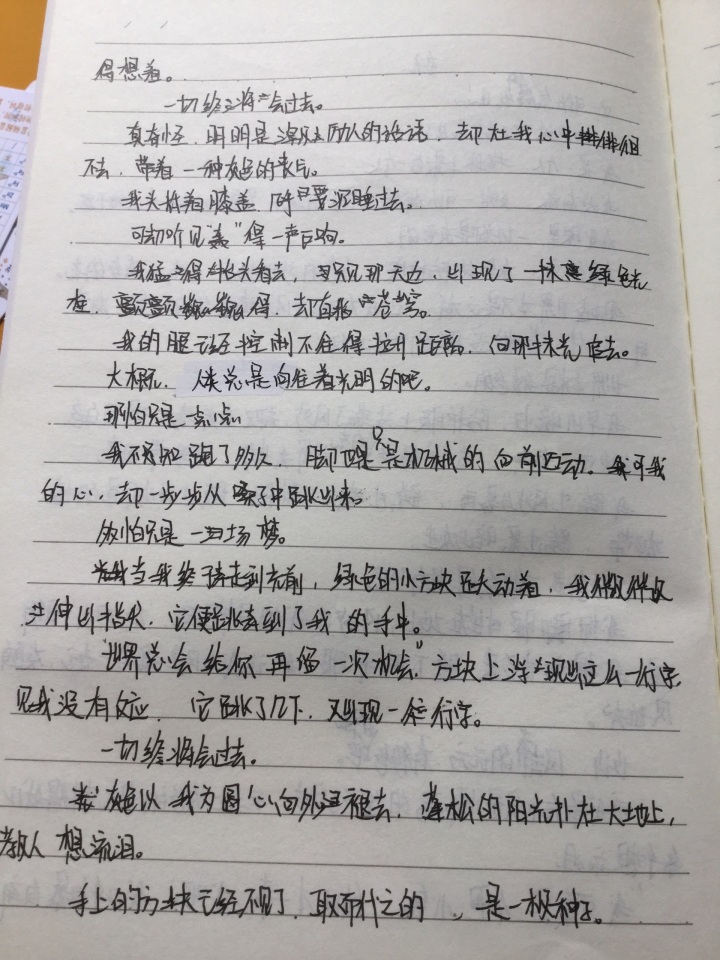 得想着。
一切终将会过去。
真奇怪，明明是激励人的话语，却在我心中徘徊
不去，带着一种灰色的丧气。
我头抵着膝盖，几乎要沉睡过去。
可却听见“轰”得一声巨响。
我猛得抬头看去，只见那天边，出现了一抹 绿色光
在，颤颤巍巍得，却直指 苍穹。
我的腿已经控制不住得拉开距离，向那抹光 去。
大概，人总是向往着光明的吧。
哪怕只是一点点
我不知跑了多久，脚只是机械的向前迈动。可我
的心，却一步步从嗓子中跳出来。
哪怕只是一场梦。
当我终于走到光前，绿色的小方块 动着，我
伸出指尖，它便跳到了我的手中。
“世界总会给你再留一次机会”方块上浮现出这么一行字
见我没有反应，它跳了几下，又出现一行字。
一切终将会过去。
灰色以我为圆心向外褪去，蓬松的阳光扑在大地上，
教人想流泪。
手上的方块已经不见了，取而代之的，是一枚种子。